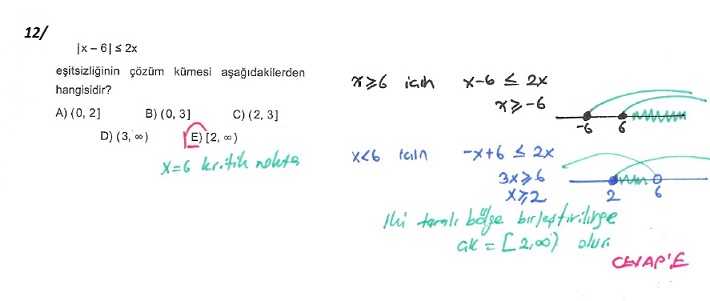 12/
|x – 6| ≤ 2x
eşitsizliğinin çözüm kümesi aşağıdakilerden
hangisidir?
A) (0, 2] B) (0, 3] C) (2, 3]
D) (3, ∞) E) [2, ∞)
x=6 kritik nokta
x≥6 için x-6 ≤ 2x
x≥-6
-6 6
x<6 için -x+6 ≤ 2x
3x≥6
x≥2
2 6
İki taralı bölge birleştirilirse
ÇK = [2,∞) olur
CEVAP'E